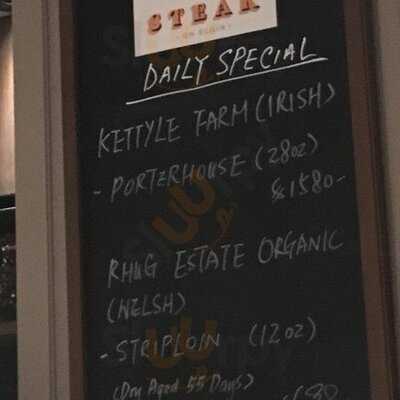 STEAK
ON ELGIN
DAILY SPECIAL
KETTYLE FARM (IRISH)
- PORTERHOUSE (28oz)
$1580-
RHUG ESTATE ORGANIC
(WELSH)
- STRIPLOIN (12oz)
(Dry Aged 55 Days)